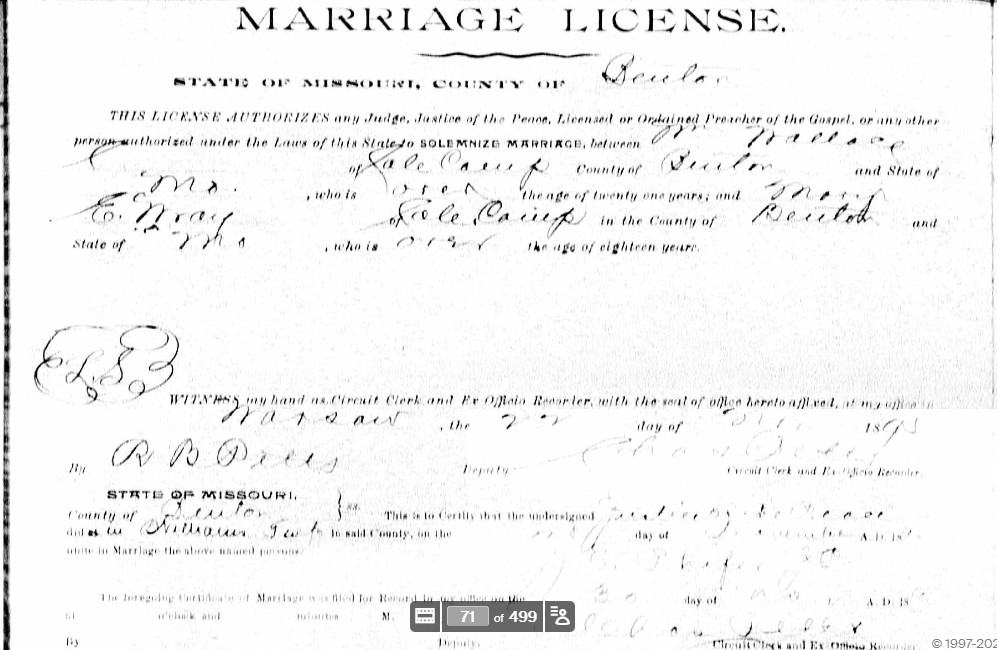 MARRIAGE LICENSE.
STATE OF MISSOURI, COUNTY OF Benton
THIS LICENSE AUTHORIZES any Judge, Justice of the Peace, Licensed or Ordained Preacher of the Gospel, or any other
person authorized under the Laws of this State to SOLEMNIZE MARRIAGE, between Wm Wallace
of Cole Camp County of Benton and State of
Mo. , who is over the age of twenty one years; and Mary
E. Wray of Cole Camp in the County of Benton and
State of Mo , who is over the age of eighteen years.
L.S.
WITNESS my hand as Circuit Clerk and Ex Officio Recorder, with the seal of office hereto affixed, at my office in
Warsaw , the 22 day of 1895
By R B Deputy. Circuit Clerk and Ex-Officio Recorder.
STATE OF MISSOURI,
County of Benton } ss. This is to Certify that the undersigned Justice of the Peace
did at in Williams Twp in said County, on the day of A.D. 18
unite in Marriage the above named persons.
The foregoing Certificate of Marriage was filed for Record in my office on the 30 day of A.D. 18
at o'clock and minutes M.
By Deputy. Circuit Clerk and Ex-Officio Recorder.
71 of 499